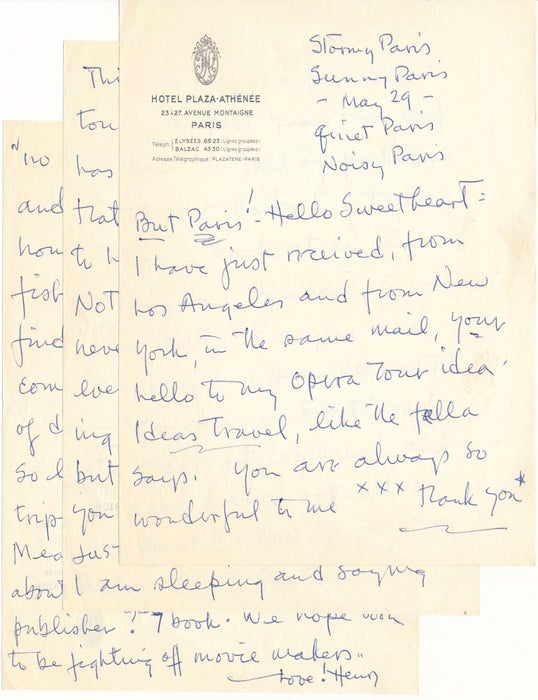 HOTEL PLAZA-ATHÉNÉE
23 à 27, AVENUE MONTAIGNE
PARIS
Téléph. ELYSÉES 85 23 (Lignes groupées)
BALZAC 43 30 (Lignes groupées)
Adresse Télégraphique: PLAZATENE-PARIS
Stormy Paris
Sunny Paris
- May 29 -
Quiet Paris
Noisy Paris
But Paris! - Hello Sweetheart:
I have just received, from
Los Angeles and from New
York, in the same mail, your
hello to my Opera Tour idea.
Ideas Travel, like the fella
says. You are always so
wonderful to me xxx Thank you*
Thi
tou
has
that
to h
Not
neve
eve
ing
but
you
Just
I am sleeping and saying
"no
and
how
fish
find
com
of d
So I
trip
Mea
about
publisher book. We hope soon
to be fighting off movie makers..
Love! Henry